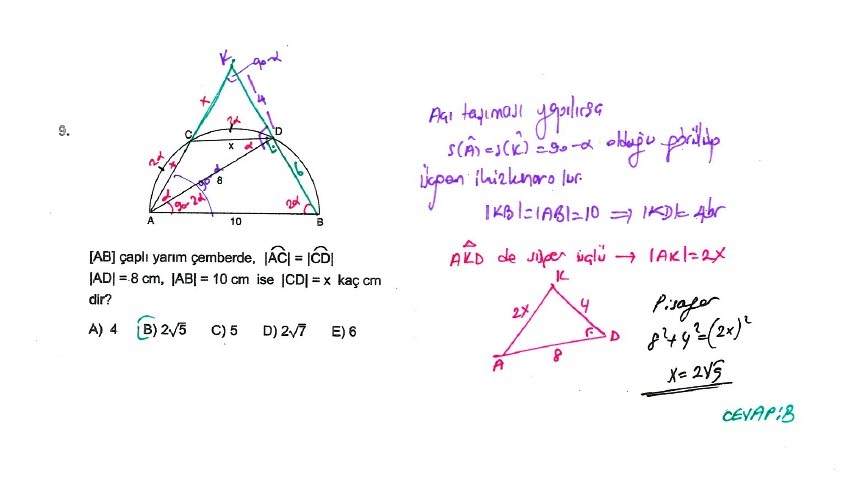 9.
K
90-α
x
4
2α
C
D
x
α
2α
x
α
6
90-2α
α
90
8
2α
A
10
B
[AB] çaplı yarım çemberde, |AC| = |CD|
|AD| = 8 cm, |AB| = 10 cm ise |CD| = x kaç cm
dir?
A) 4 B) 2√5 C) 5 D) 2√7 E) 6
Açı taşıması yapılırsa
s(Â)=s(K̂)=90-α olduğu görülüp
üçgen ikizkenar olur.
|KB|=|AB|=10 ⇒ |KD|=4br
AKD de süper üçlü → |AK|=2x
K
2x
4
D
A
8
Pisagor
8²+4²=(2x)²
x=2√5
CEVAP:B